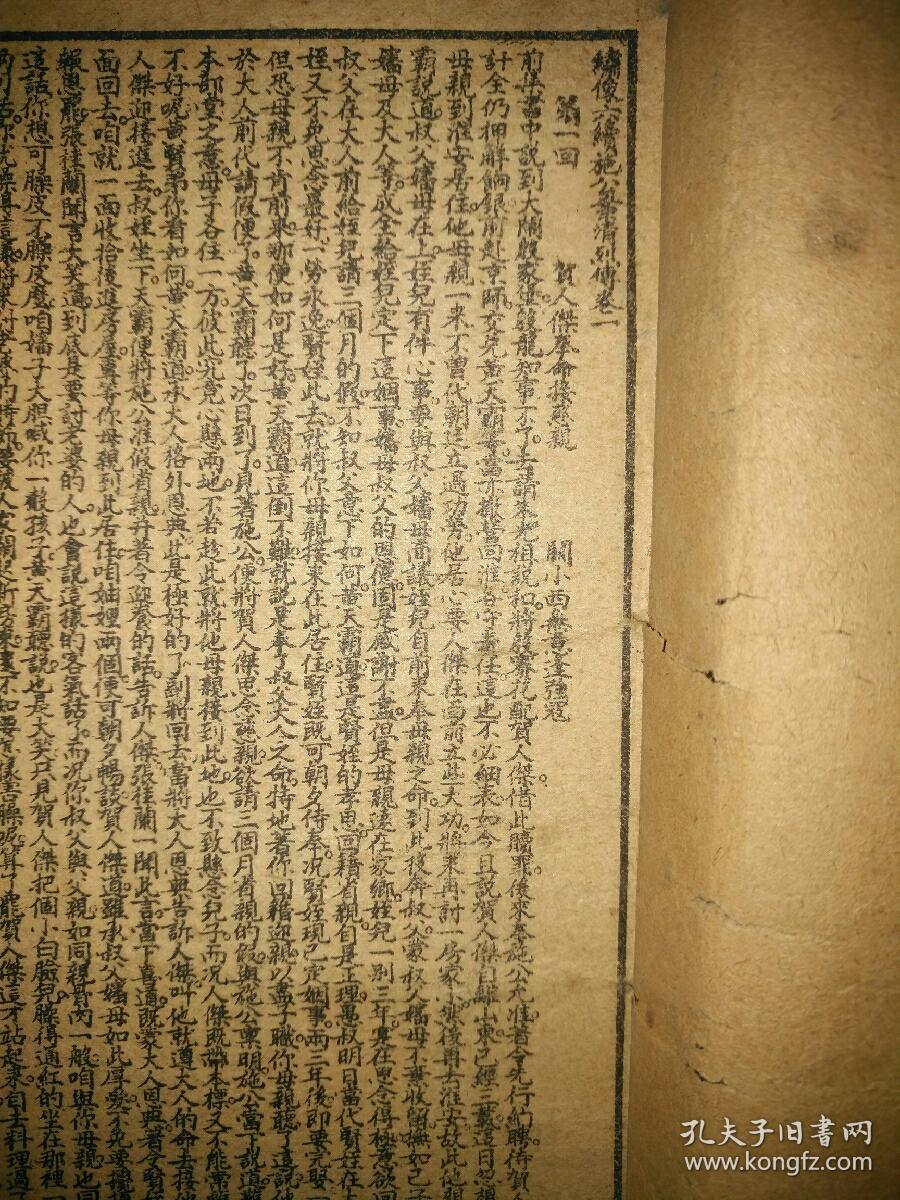 繡像六續施公案清烈傳卷一
第一回 賀人傑奉命接慈親 關小西無意逢強寇
前集書中說到大鬧殷家堡殷龍知事不了去請朱光祖說和將殷賽花配賀人傑借此贖罪後來奉施公允准著令先行納聘待賀
計全仍押解餉銀前赴京師交兌黃天霸等當亦撤營回淮各守專任這也不必細表如今且說賀人傑自離山東已經三載這日忽
母親到淮安居住他母親一來不曾代朝廷立過功勞他居心要人傑在面前立些大功將來再討一房家小然後再去淮安故此他
霸說道叔父嬸母在上姪兒有件心事要與叔父嬸母商議姪兒自前來奉母親之命到此投奔叔父蒙叔父嬸母不棄收留撫如己子
嬸母及大人等成全給姪兒定下這姻事嬸母叔父的恩德固是感謝不盡但是母親遠在家鄉姪兒一別三年實在思念得極意欲回
叔父在大人前給姪兒請三個月的假不知叔父意下如何黃天霸道這是賢姪的孝思回籍省親自是正理愚叔明日當代賢姪在
姪又不免思念最好一勞永逸賢姪此去就將你母親接來在此居住賢姪既可朝夕侍奉況賢姪現已定姻事兩三年後即要完娶
但恐母親不肯前來那便如何是好黃天霸道這倒不難就說是奉了叔父大人之命特地著你回籍迎親以盡子職你母親聽了這說
於大人前代請假便了黃天霸聽了次日到了見著施公便將賀人傑思念慈親欲請三個月省親的假與施公稟明施公當下說道
本部堂之意母子各住一方彼此究竟心懸兩地不若趁此就將他母親接到此地也不致懸念兒子而況人傑既歸本標又不能常
不好呢黃賢弟你看如何黃天霸道承大人格外恩典此是極好的了副將回去當將大人恩典告訴人傑叫他就遵大人的命去接他
人傑迎接進去叔姪坐下天霸便將施公准假省親并著令迎養的話告訴人傑張桂蘭一聞此言當下喜道既蒙大人恩典著令賢
面回去咱就一面收拾後進房屋專等你母親到此居住咱妯娌兩個便可朝夕暢談賀人傑道雖承叔父嬸母如此厚愛不免要攪
賴恩寵張桂蘭聞言大笑道到底是要討老婆的人也會說這樣的客氣話了而況你叔父與父親如同親骨肉一般咱與你母親也
這話你想可臊皮不臊皮麼咱嬸子大胆喊你一聲孩子黃天霸聽說也是大笑只見賀人傑把個小白臉兒臊得通紅的坐在那裡
罷賀人傑這才站起來自去料理過了